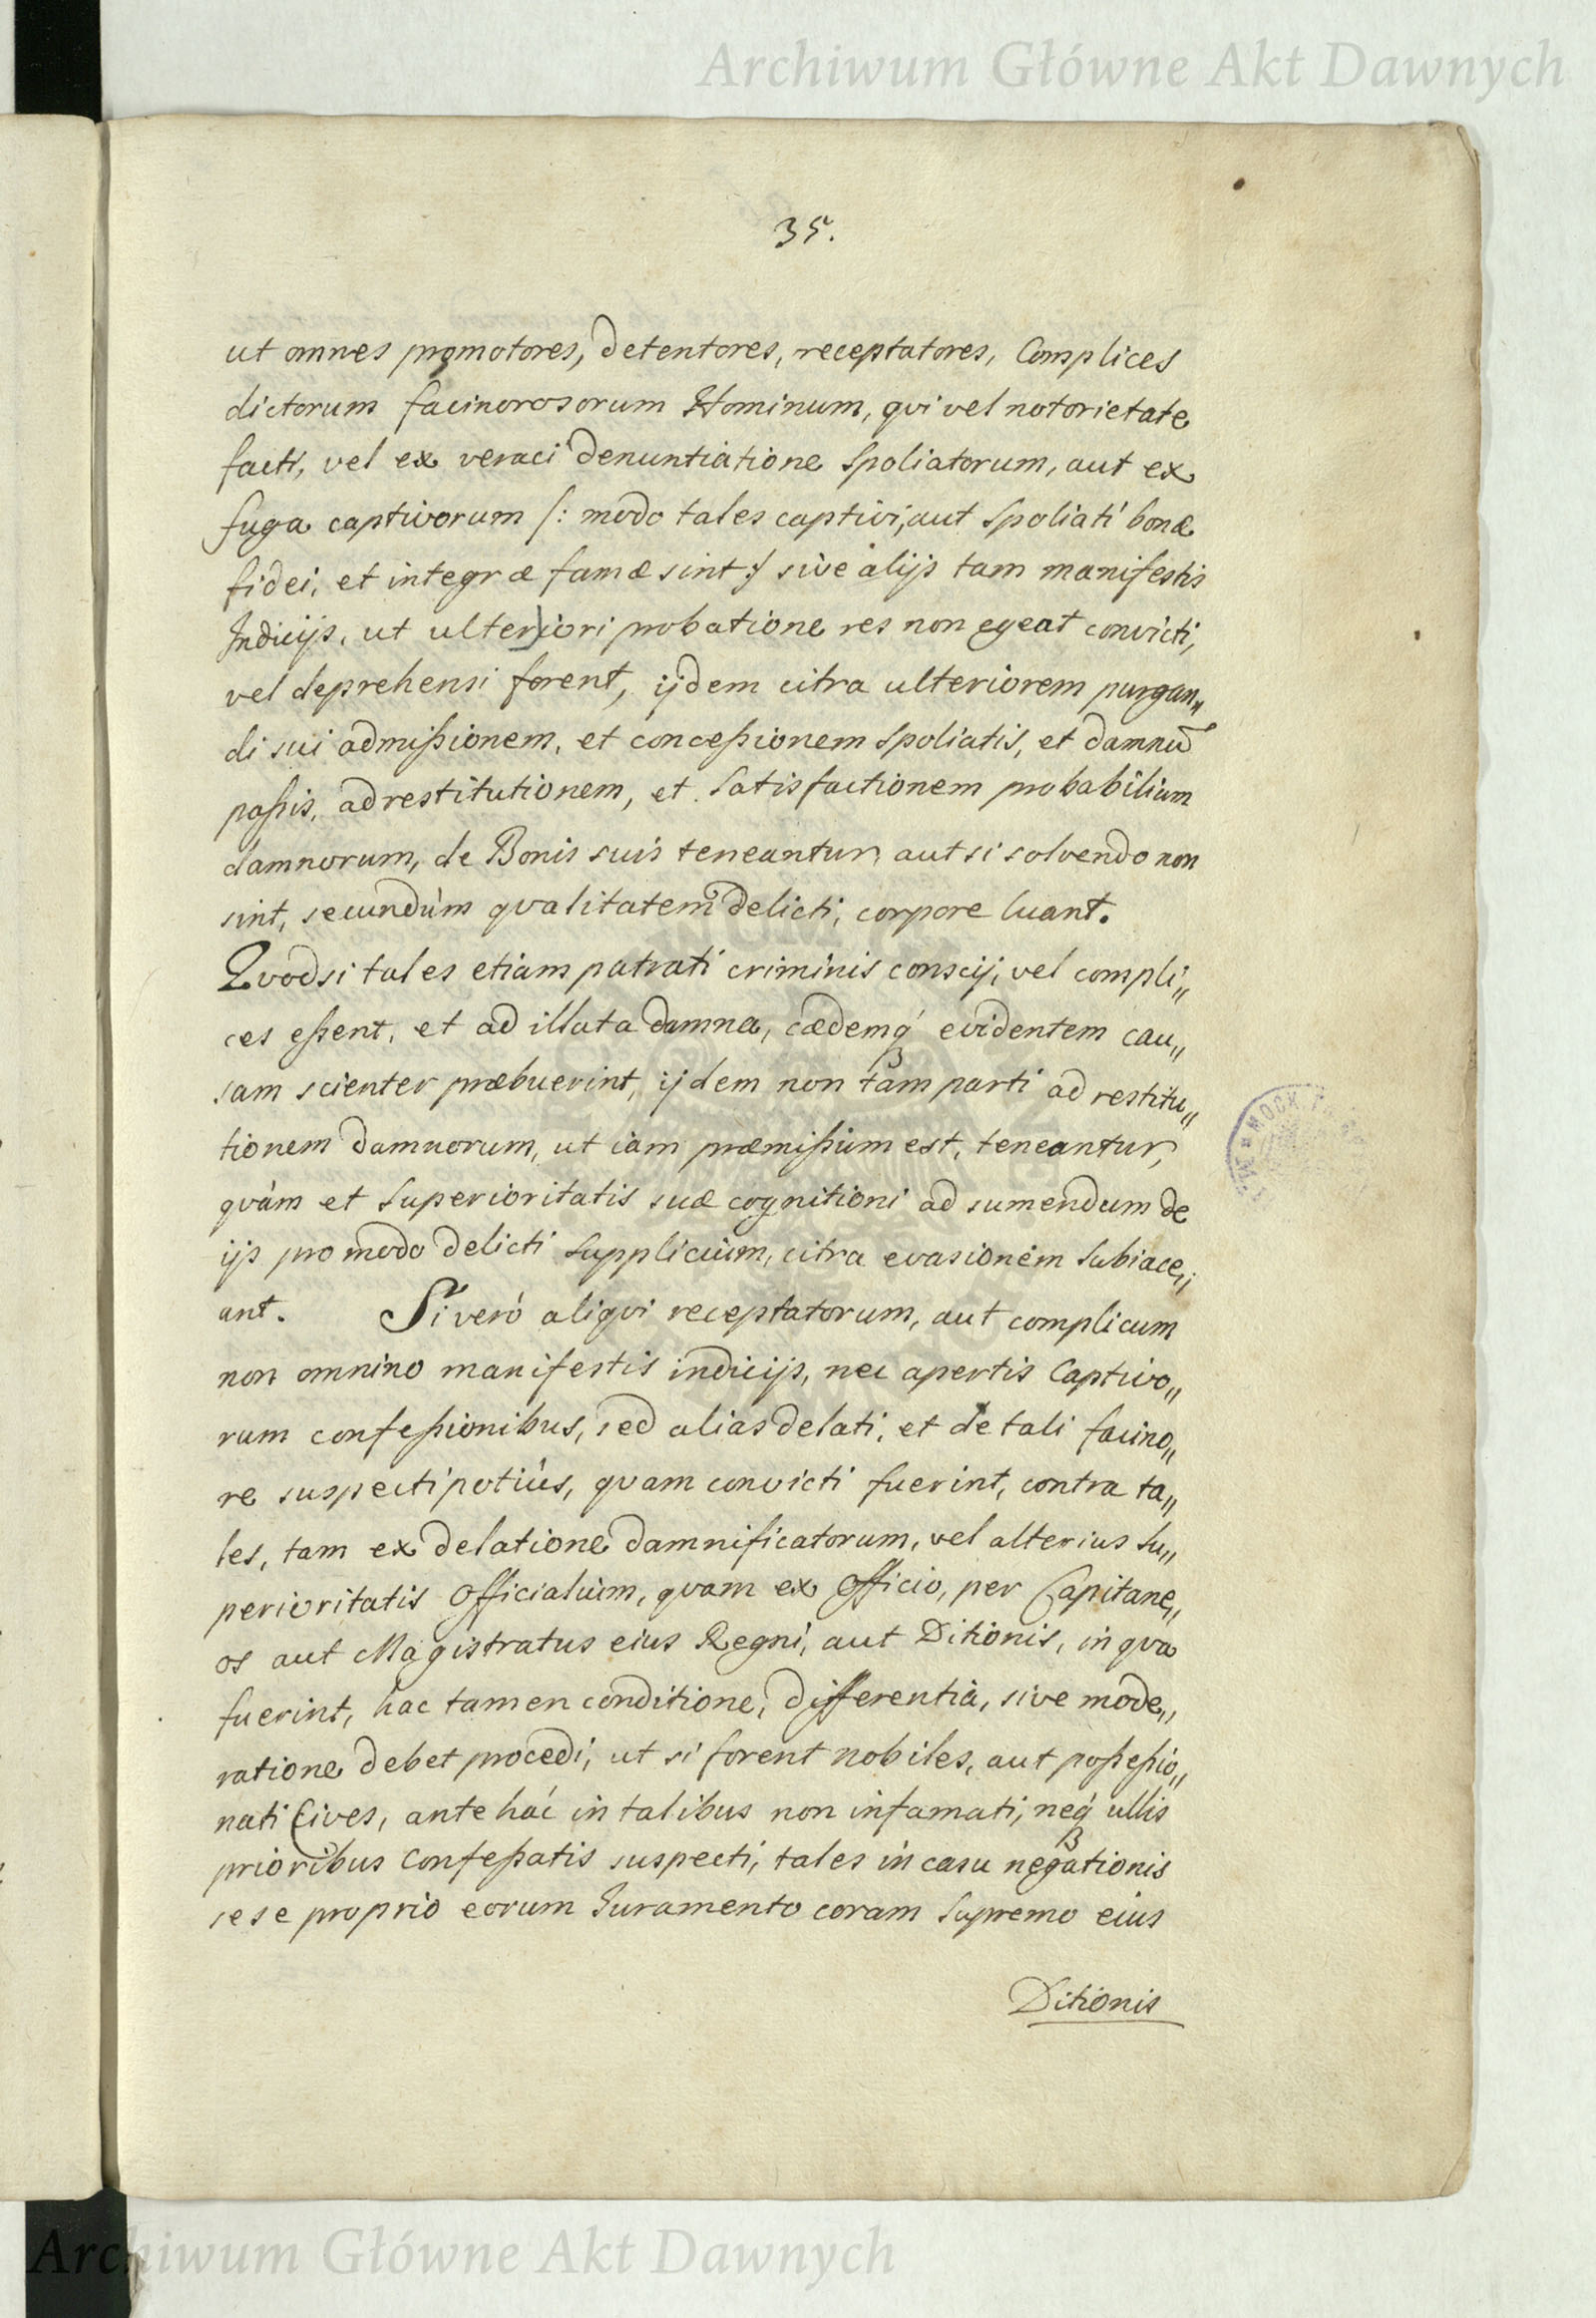 Archiwum Główne Akt Dawnych
35.
ut omnes promotores, detentores, receptatores, Complices
dictorum facinorosorum Hominum, qvi vel notorietate
facti, vel ex veraci denuntiatione Spoliatorum, aut ex
fuga captivorum /: modo tales captivi, aut Spoliati bonæ
fidei, et integræ famæ sint :/ sive alijs tam manifestis
Indicijs, ut ulteriori probatione res non egeat convicti,
vel deprehensi forent, ijdem citra ulteriorem purgan„
di sui admißionem, et conceßionem Spoliatis, et damnū
paßis, ad restitutionem, et Satisfactionem probabilium
damnorum, de Bonis suis teneantur, aut si solvendo non
sint, secundùm qvalitatem delicti, corpore luant.
Qvodsi tales etiam patrati criminis conscij, vel compli„
ces eßent, et ad illata damna, cædemq́ evidentem cau„
sam scienter præbuerint, ijdem non tam parti ad restitu„
tionem damnorum, ut iam præmißum est, teneantur,
qvàm et Superioritatis suæ cognitioni ad sumendum de
ijs pro modo delicti Supplicium, citra evasionem Subiace„
ant. Si verò aliqvi receptatorum, aut complicum
non omnino manifestis indicijs, nec apertis Captivo„
rum confeßionibus, sed alias delati, et de tali facino„
re suspecti potiùs, qvam convicti fuerint, contra ta„
les, tam ex delatione damnificatorum, vel alterius Su„
perioritatis Officialium, qvam ex Officio, per Capitane„
os aut Magistratus eius Regni, aut Ditionis, in qva
fuerint, hac tamen conditione, differentia, sive mode„
ratione debet procedi, ut si forent nobiles, aut poßeßio„
nati Cives, ante hác in talibus non infamati, neq́ ullis
prioribus Confeßatis suspecti, tales in casu negationis
sese proprio eorum Iuramento coram Supremo eius
Ditionis
Archiwum Główne Akt Dawnych